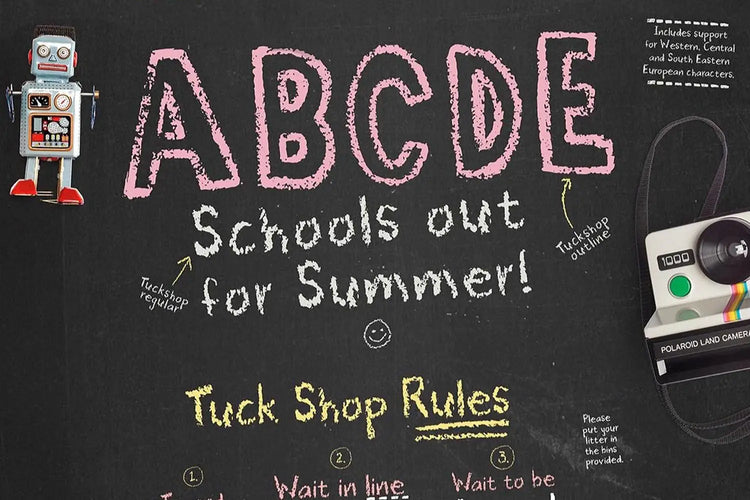 ABCDE
Includes support
for Western, Central
and South Eastern
European characters.
Schools out
for Summer!
Tuckshop
regular
Tuckshop
outline
1000
POLAROID LAND CAMERA
Tuck Shop Rules
Please
put your
litter in
the bins
provided.
1.
2.
3.
Wait in line
Wait to be